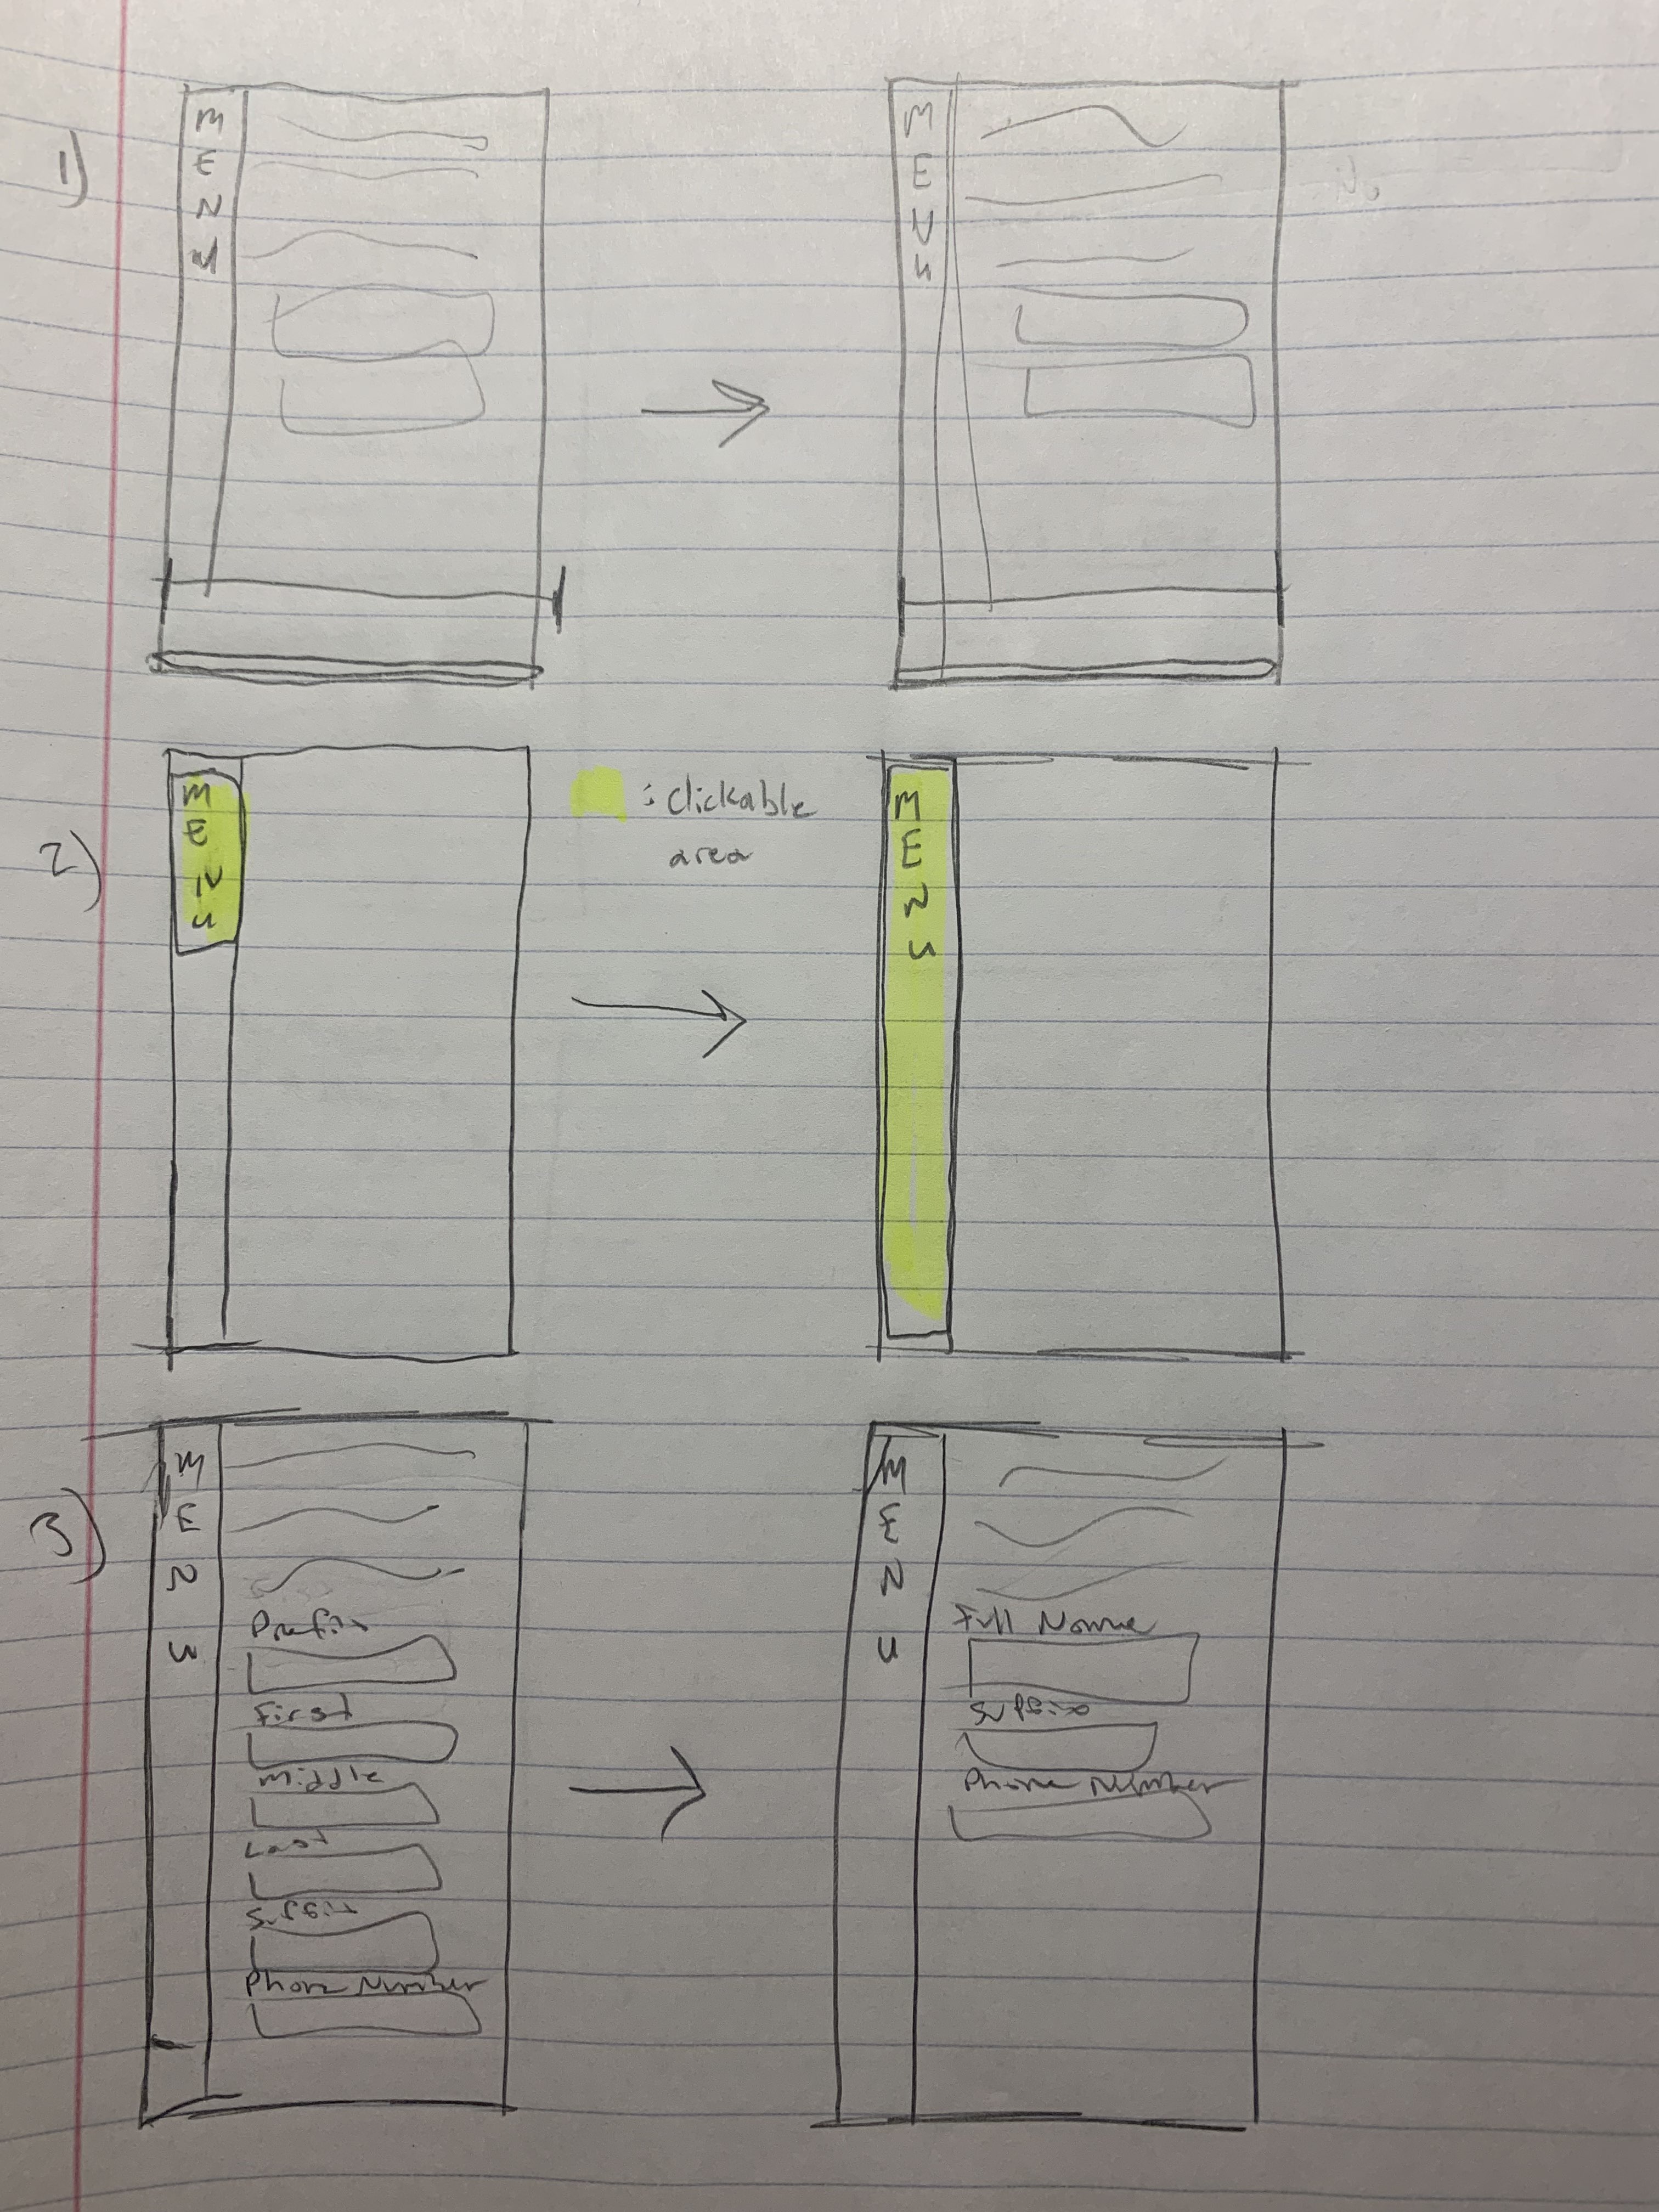 1)
M
E
N
U
M
E
N
U
2)
M
E
N
U
: clickable
area
M
E
N
U
3)
M
E
N
U
Prefix
First
Middle
Last
Suffix
Phone Number
M
E
N
U
Full Name
Suffix
Phone Number